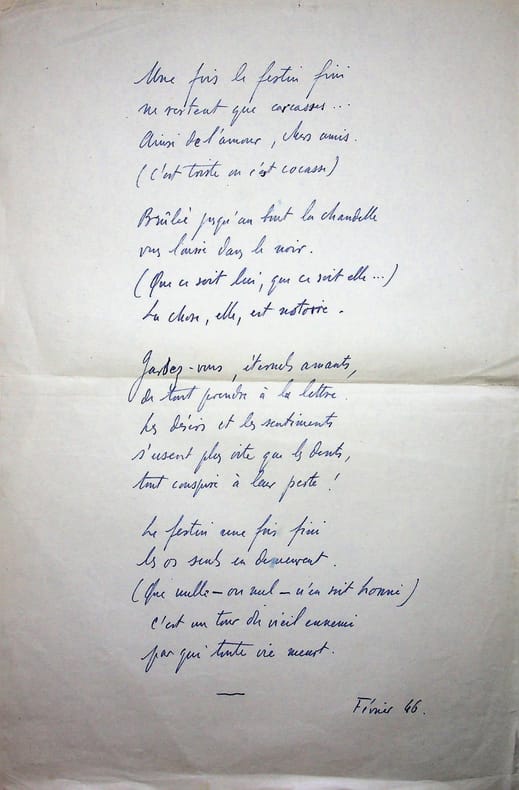 Une fois le festin fini
ne restent que carcasses...
Ainsi de l'amour, chers amis.
(C'est triste ou c'est cocasse)
Brûlée jusqu'au bout la chandelle
vous laisse dans le noir.
(Que ce soit lui, que ce soit elle...)
La chose, elle, est notoire.
Gardez-vous, éternels amants,
de tout prendre à la lettre.
Les désirs et les sentiments
s'usent plus vite que les dents,
tout conspire à leur perte !
Le festin une fois fini
les os seuls en demeurent.
(Que nulle - ou nul - n'en soit honni)
c'est un tour du vieil ennemi
par qui toute vie meurt.
Février 46.